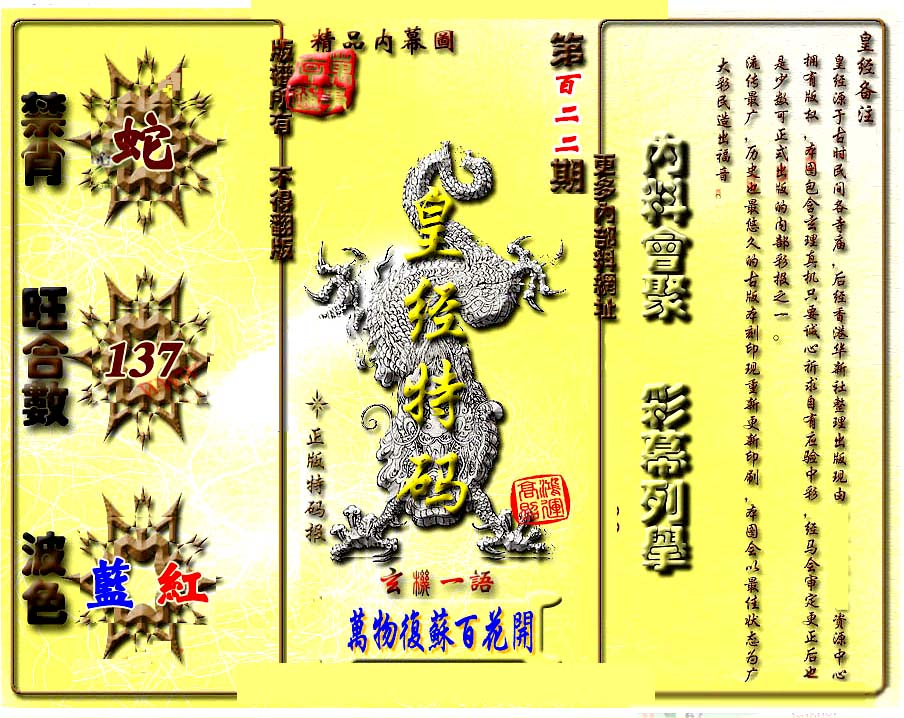 皇经备注
皇经源于古时民间各寺庙,后经香港华新社整理出版现由 资源中心
拥有版权,本图包含玄理真机只要诚心祈求自有应验中彩,经马会审定更正后也
是少数可正式出版的内部彩报之一。
流传最广,历史也最悠久的古版本刻印现重新更新印刷,本图会以最佳状态为广
大彩民造出福音
內料會聚
彩幕列舉
更多內部料網址
第百二二期
精品内幕圖
版權所有 不得翻版
皇经特码
正版特码报
鴻運
高照
玄機一語
萬物復蘇百花開
禁肖
蛇
旺合數
137
波色
藍 紅